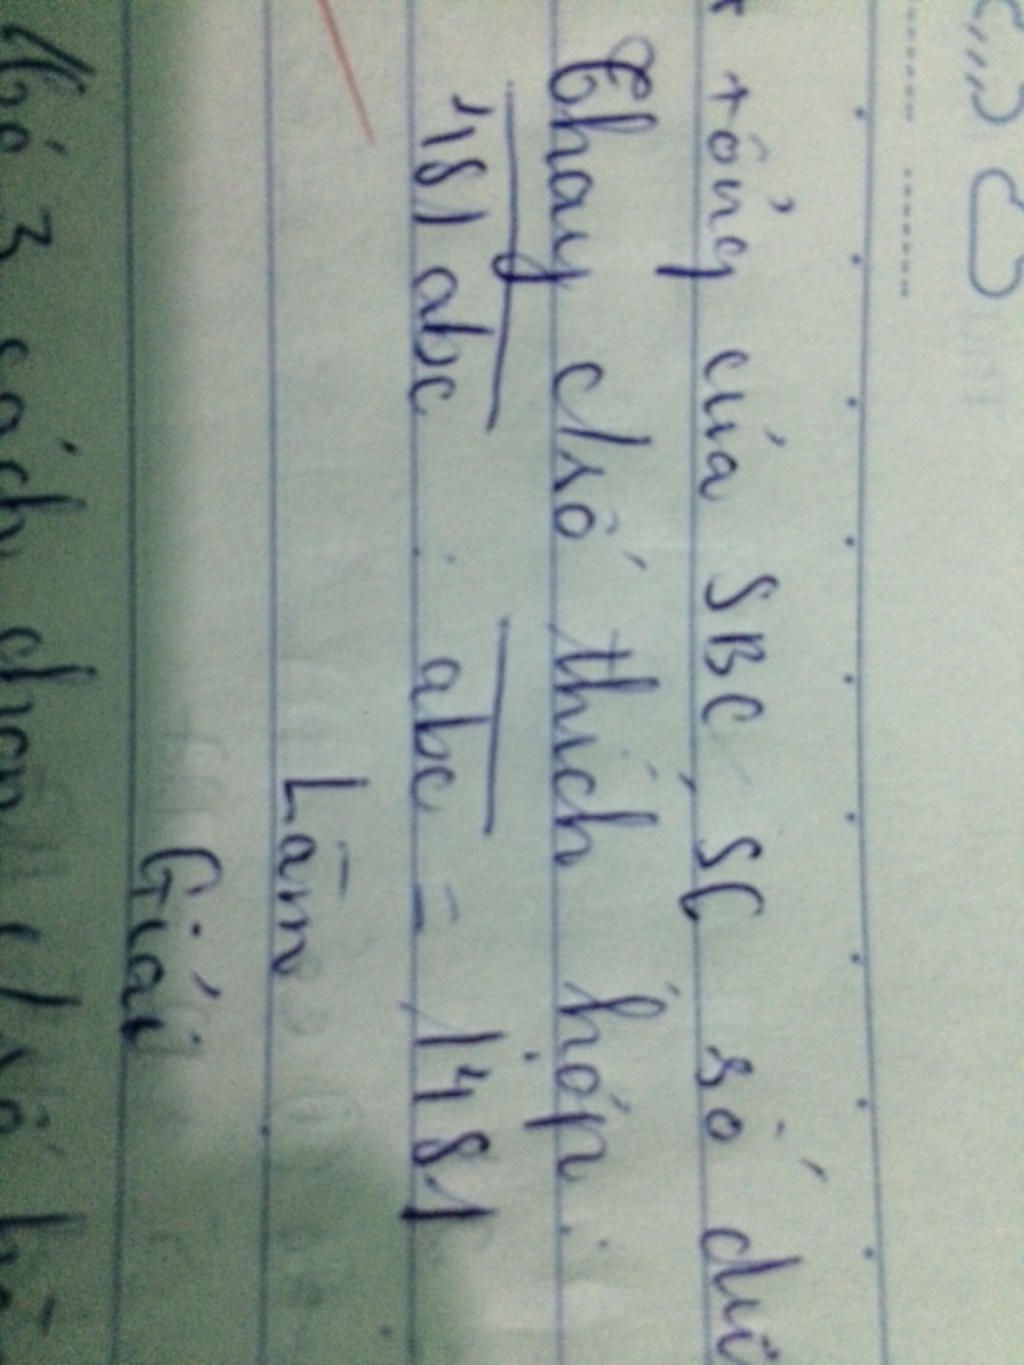 tổng của SBC, SC số dư
Thay c/số thích hợp.
481abc : abc = 1481
Làm
Giải
Có 3 sách